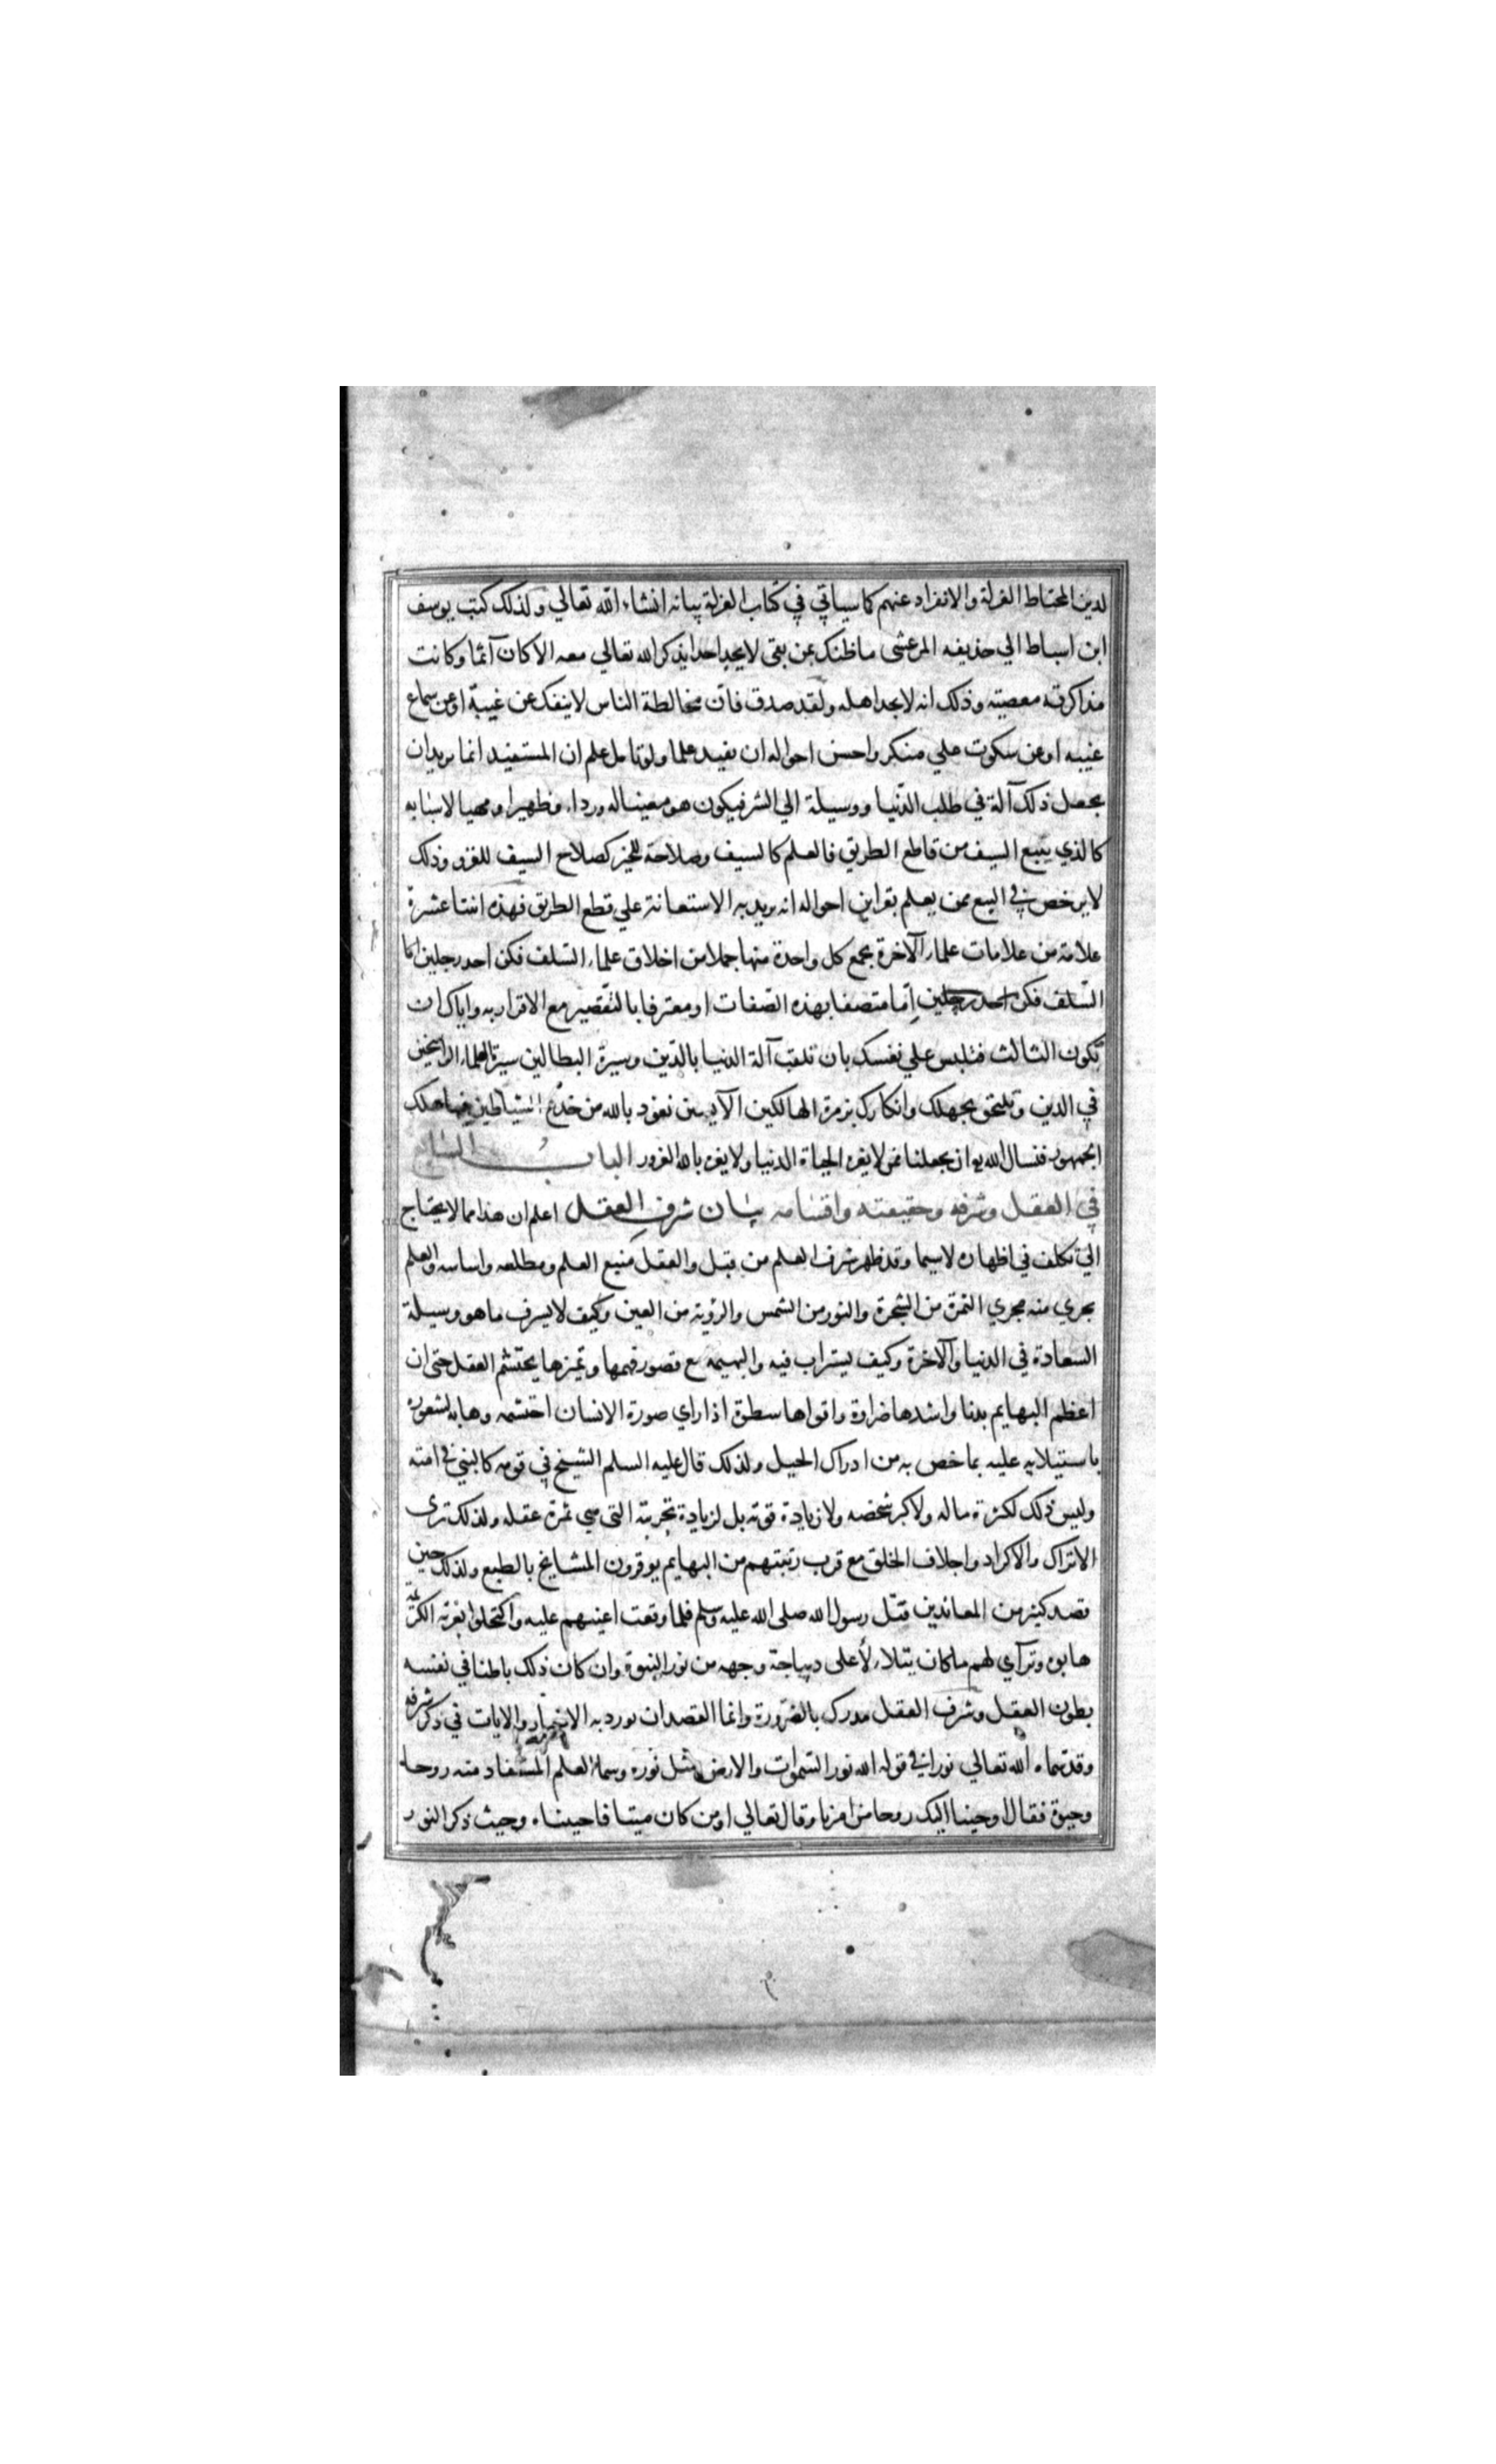 لدينه المحتاط العزلة والانفراد عنهم كما سياتي في كتاب العزلة بيانه انشاء الله تعالي ولذلك كتب يوسف
ابن اسباط الي حذيفه المرعشي ما ظنك بمن بقي لا يجد احدا يذكر الله تعالي معه الا كان آثما وكانت
مذاكرته معصيته وذلك انه لا يجد اهله ولقد صدق فان مخالطة الناس لا ينفك عن غيبة او عن سماع
غيبه او عن سكوت علي منكر واحسن احواله ان يفيد علما ولو تامل علم ان المستفيد انما يريد ان
يجعل ذلك آلة في طلب الدنيا ووسيلة الي الشر فيكون هو معينا له وردا وظهيرا ومهيا لاسبابه
كالذي يبيع السيف من قاطع الطريق فالعلم كالسيف وصلاحه للخير كصلاح السيف للغزو وذلك
لا يرخص في البيع ممن يعلم بقراين احواله انه يريد به الاستعانة علي قطع الطريق فهذه اثنتا عشرة
علامة من علامات علماء الآخرة يجمع كل واحدة منها جملا من اخلاق علماء السلف فكن احد رجلين اما
السلف فكن احد رجلين اما متصفا بهذه الصفات او معترفا بالتقصير مع الاقرار به واياك ان
تكون الثالث فتلبس علي نفسك بان تلقب آلة الدنيا بالدين وسيرة البطالين سيرة العلماء الراسخين
في الدين وتلتحق بجهلك وانكارك بزمرة الهالكين الآيسين نعوذ بالله من خدع الشياطين فبها هلك
الجمهور فنسال الله ان يجعلنا ممن لا يغره الحياة الدنيا ولا يغره بالله الغرور الباب السابع
في العقل وشرفه وحقيقته واقسامه بيان شرف العقل اعلم ان هذا مما لا يحتاج
الي تكلف في اظهاره لاسيما وقد ظهر شرف العلم من قبل والعقل منبع العلم ومطلعه واساسه والعلم
يجري منه مجري الثمرة من الشجرة والنور من الشمس والرؤية من العين وكيف لا يشرف ما هو وسيلة
السعادة في الدنيا والآخرة وكيف يستراب فيه والبهيمه مع قصور فهمها وتميزها يحتشم العقل حتى ان
اعظم البهايم بدنا واشدها ضراوة واقواها سطوة اذا راي صورة الانسان احتشمه وهابه لشعوره
باستيلايه عليه بما خص به من ادراك الحيل ولذلك قال عليه السلم الشيخ في قومه كالنبي في امته
وليس ذلك لكثرة ماله ولا كبر شخصه ولا زيادة قوته بل لزيادة تجربته التي هي ثمرة عقله ولذلك ترى
الاتراك والاكراد واجلاف الخلق مع قرب رتبتهم من البهايم يوقرون المشايخ بالطبع ولذلك حين
قصد كثير من المعاندين قتل رسول الله صلى الله عليه وسلم فلما وقعت اعينهم عليه واكتحلوا بغرته الكريمة
هابوه وترآي لهم ما كان يتلالأ على ديباجة وجهه من نور النبوة وان كان ذلك باطنا في نفسه
بطون العقل وشرف العقل مدرك بالضرورة وانما القصد ان نورد به الاخبار والايات في ذكر شرفه
وقد سماه الله تعالي نورا في قوله الله نور السموات والارض مثل نوره وسمي العلم المستفاد منه روحا
وحيوة فقال اوحينا اليك روحا من امرنا وقال تعالي اومن كان ميتا فاحييناه وحيث ذكر النور